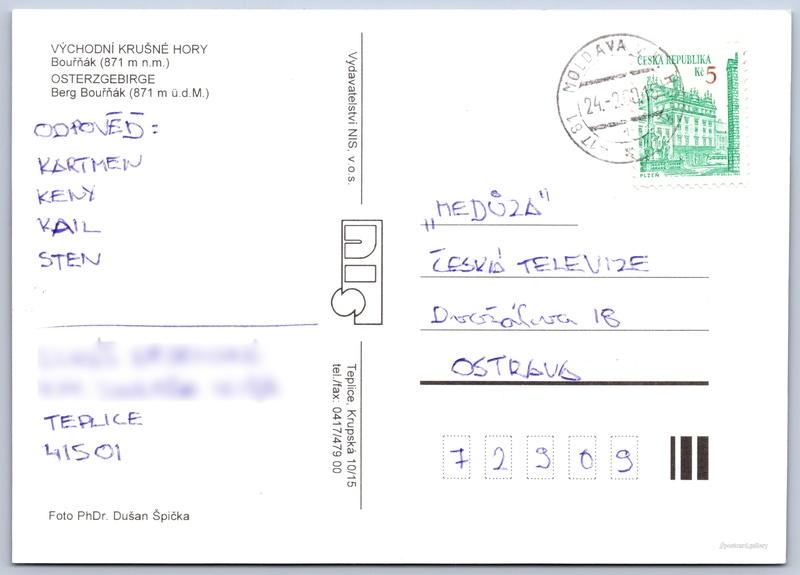 VÝCHODNÍ KRUŠNÉ HORY
Bouřňák (871 m n.m.)
OSTERZGEBIRGE
Berg Bouřňák (871 m ü.d.M.)
ODPOVĚĎ:
KARTMEN
KENY
KAIL
STEN
TEPLICE
41501
Foto PhDr. Dušan Špička
Vydavatelství NIS, v.o.s.
nis
Teplice, Krupská 10/15
tel./fax: 0417/479 00
MOLDAVA
24.-2.
ČESKÁ REPUBLIKA
Kč 5
PLZEŇ
„MEDŮZA"
ČESKÁ TELEVIZE
Dvořákova 18
OSTRAVA
72909
//postcard.gallery